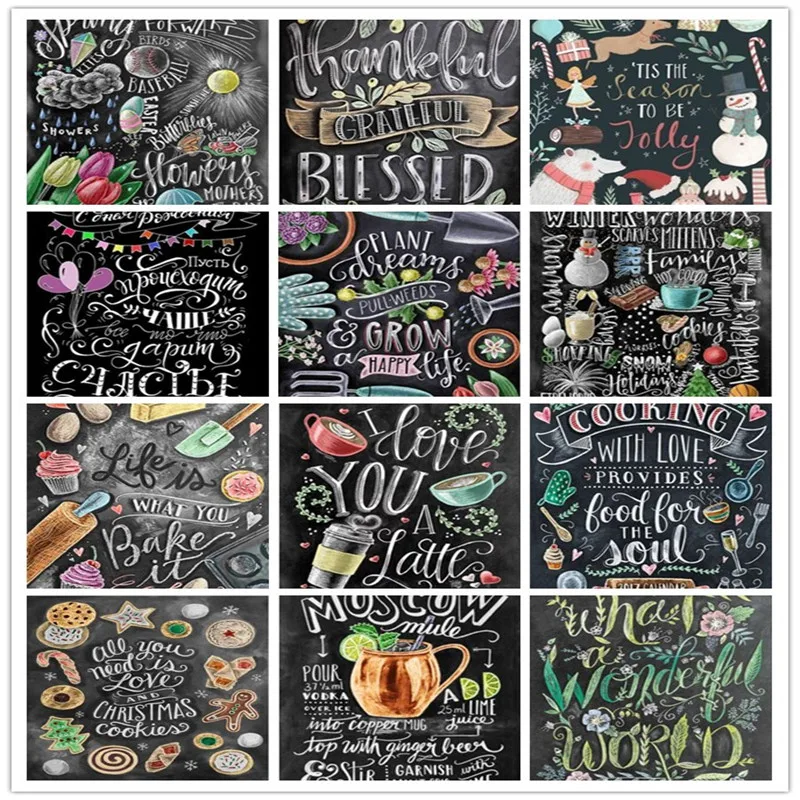 Spring
FORWARD
KITES
BIRDS
BASEBALL
SUNSHINE
EASTER
SHOWERS
Butterflies
LAWNMOWERS
flowers
MOTHERS
thankful
GRATEFUL
BLESSED
'TIS THE
Season
TO BE
Jolly
С днём Рождения
Пусть
происходит
ЧАЩЕ
все то что
дарит
СЧАСТЬЕ
PLANT
dreams
PULL WEEDS
& GROW
a HAPPY life
WINTER Wonders
SCARVES MITTENS
Family
HOT COCOA
Cookies
SHOPPING
SNOW
Holidays
Life is
WHAT YOU
Bake
it
I love
YOU
A
Latte
COOKING
WITH LOVE
PROVIDES
food for
THE
soul
2017 CALENDAR
all you
need is
Love
AND
CHRISTMAS
cookies
MOSCOW
mule
POUR
37½ ml
VODKA
OVER ICE
ADD
25 ml LIME
juice
into COPPER MUG
top with ginger beer
& Stir
GARNISH with
what
a
Wonderful
WORLD